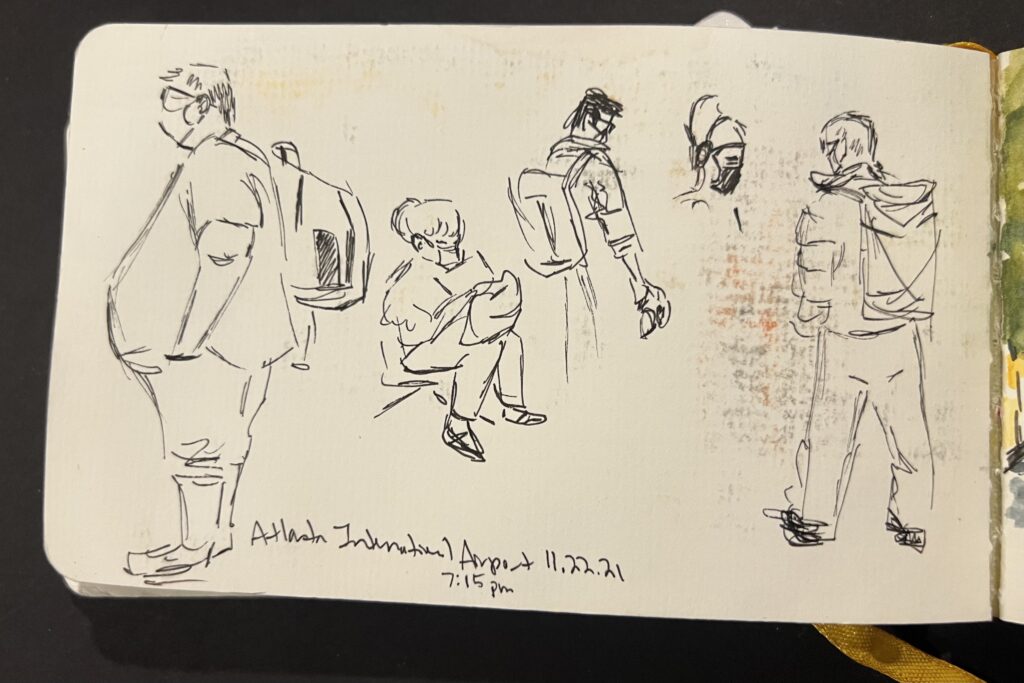 Atlanta International Airport 11.22.21
7:15 pm